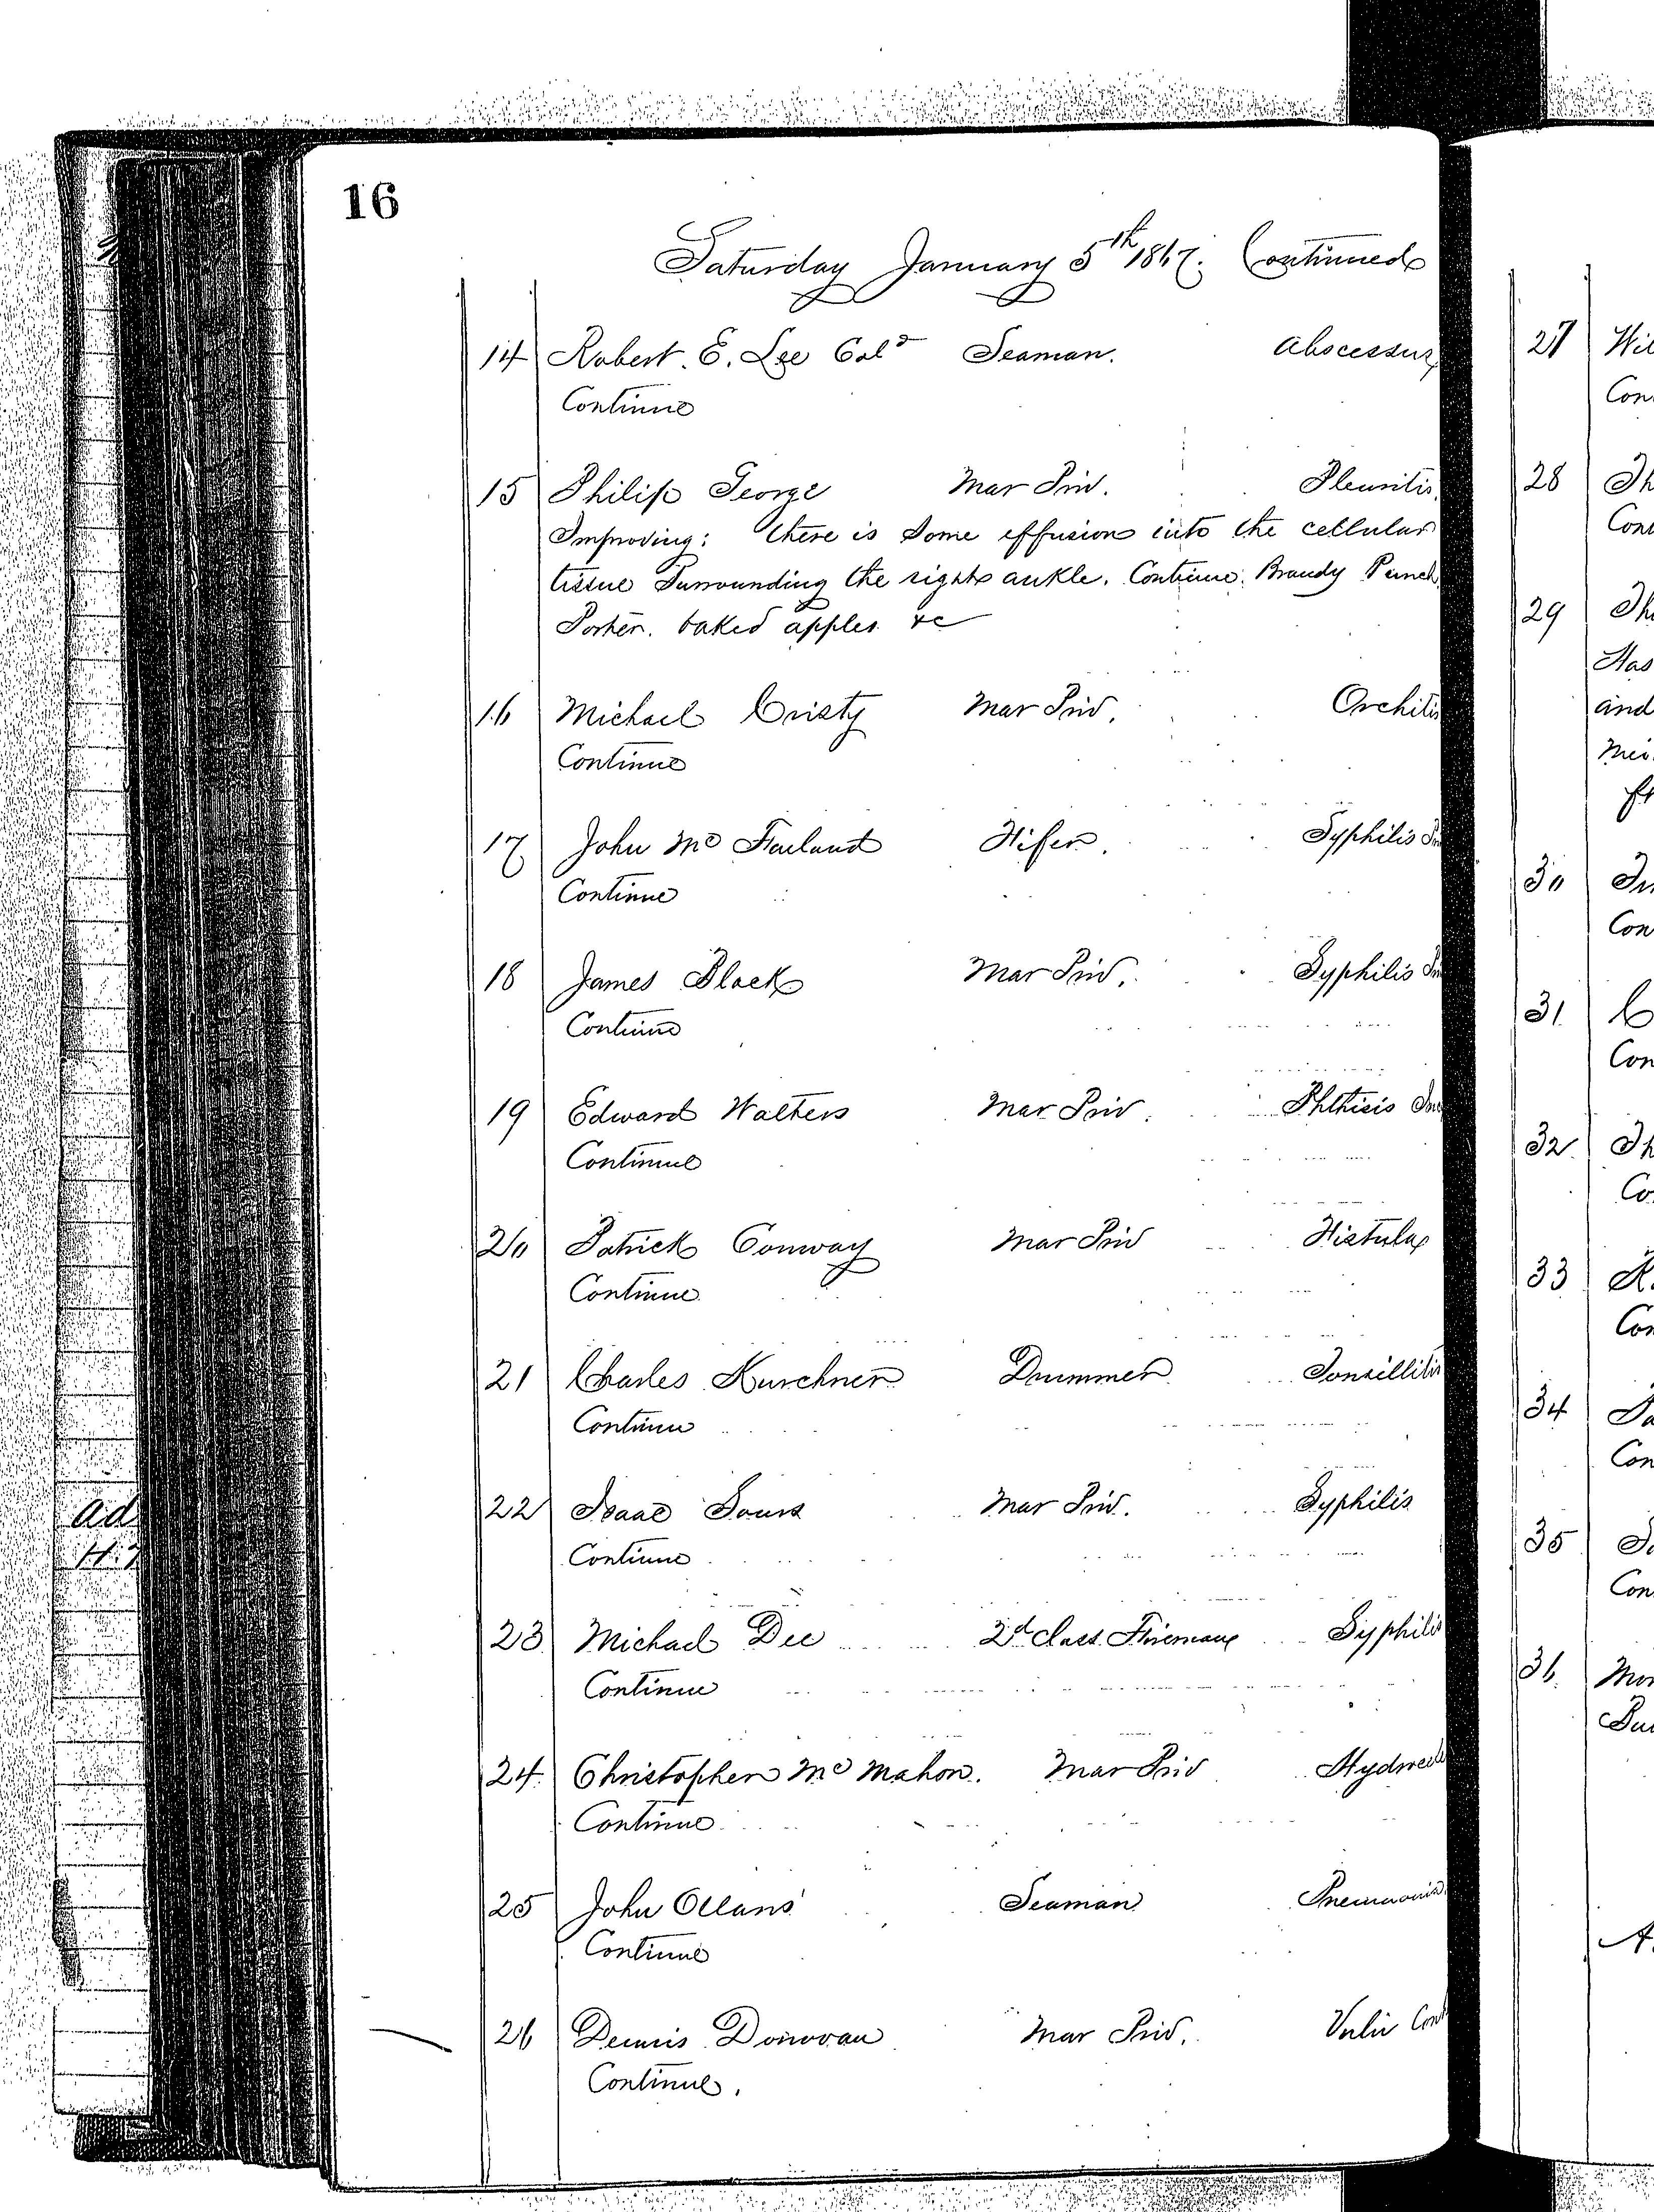 16
Saturday January 5th 1867. Continued
14 Robert. E. Lee Cold Seaman. Abscessus
Continue
15 Philip George Mar Priv. Pleuritis
Improving: there is some effusion into the cellular
tissue surrounding the right ankle. Continue. Brandy Punch
Porter. baked apples &c
16 Michael Cristy Mar Priv. Orchitis
Continue
17 John Mc Farland Fifer. Syphilis
Continue
18 James Black Mar Priv. Syphilis
Continue
19 Edward Walters Mar Priv. Phthisis
Continue
20 Patrick Conway Mar Priv Fistula
Continue
21 Charles Kurchner Drummer Tonsillitis
Continue
22 Isaac Mar Priv. Syphilis
Continue
23 Michael Dee 2d Class Fireman Syphilis
Continue
24. Christopher Mc Mahon. Mar Priv
Continue
25 John Seaman Pneumonia
Continue
26 Dennis Donovan Mar Priv.
Continue.
Ad
27 Wil
Con
28 Th
Con
29 Th
Has
and
30
Con
31 C
Con
32 Th
Co
33
Con
34
Con
35
Con
36